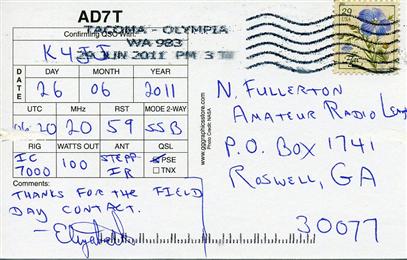 AD7T
Confirming QSO With:
K4JJ
TACOMA - OLYMPIA
WA 983
JUN 2011 PM 3
29
DATE
DAY MONTH YEAR
26 06 2011
UTC MHz RST MODE 2-WAY
2020 59 SSB
RIG WATTS OUT ANT QSL
IC 7000 100 STEPP IR PSE
TNX
Comments:
THANKS FOR THE FIELD
DAY CONTACT.
- Elizabeth
www.qggraphicsstore.com
Photo Credit: NASA
N. FULLERTON
AMATEUR RADIO
P.O. BOX 1741
ROSWELL, GA
30077